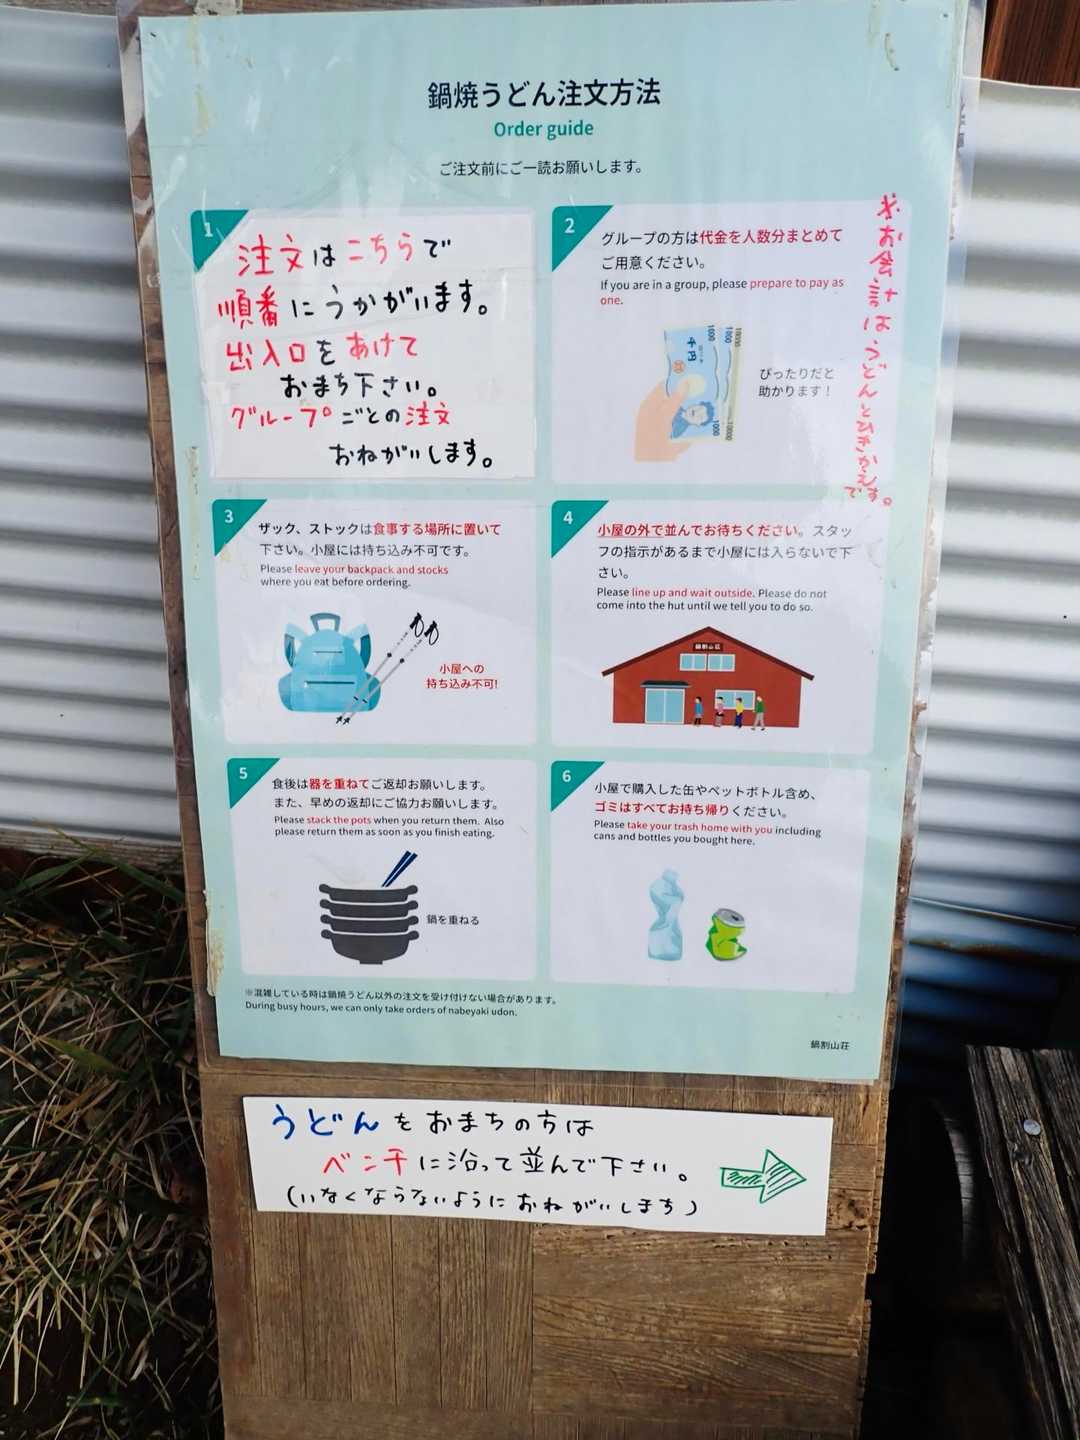 鍋焼うどん注文方法
Order guide
ご注文前にご一読お願いします。
1
注文はこちらで
順番にうかがいます。
出入口をあけて
おまち下さい。
グループごとの注文
おねがいします。
2
グループの方は代金を人数分まとめて
ご用意ください。
If you are in a group, please prepare to pay as
one.
千円
1000
1000
10000
1000
10000
ぴったりだと
助かります！
※お会計はうどんとひきかえ
です。
3
ザック、ストックは食事する場所に置いて
下さい。小屋には持ち込み不可です。
Please leave your backpack and stocks
where you eat before ordering.
小屋への
持ち込み不可!
4
小屋の外で並んでお待ちください。スタッ
フの指示があるまで小屋には入らないで下
さい。
Please line up and wait outside. Please do not
come into the hut until we tell you to do so.
鍋割山荘
5
食後は器を重ねてご返却お願いします。
また、早めの返却にご協力お願いします。
Please stack the pots when you return them. Also
please return them as soon as you finish eating.
鍋を重ねる
6
小屋で購入した缶やペットボトル含め、
ゴミはすべてお持ち帰りください。
Please take your trash home with you including
cans and bottles you bought here.
※混雑している時は鍋焼うどん以外の注文を受け付けない場合があります。
During busy hours, we can only take orders of nabeyaki udon.
鍋割山荘
うどんをおまちの方は
ベンチに沿って並んで下さい。
(いなくならないようにおねがいします)